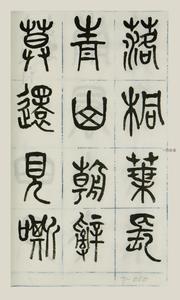 落桐葉長
青山朝辭
莫還見嘶